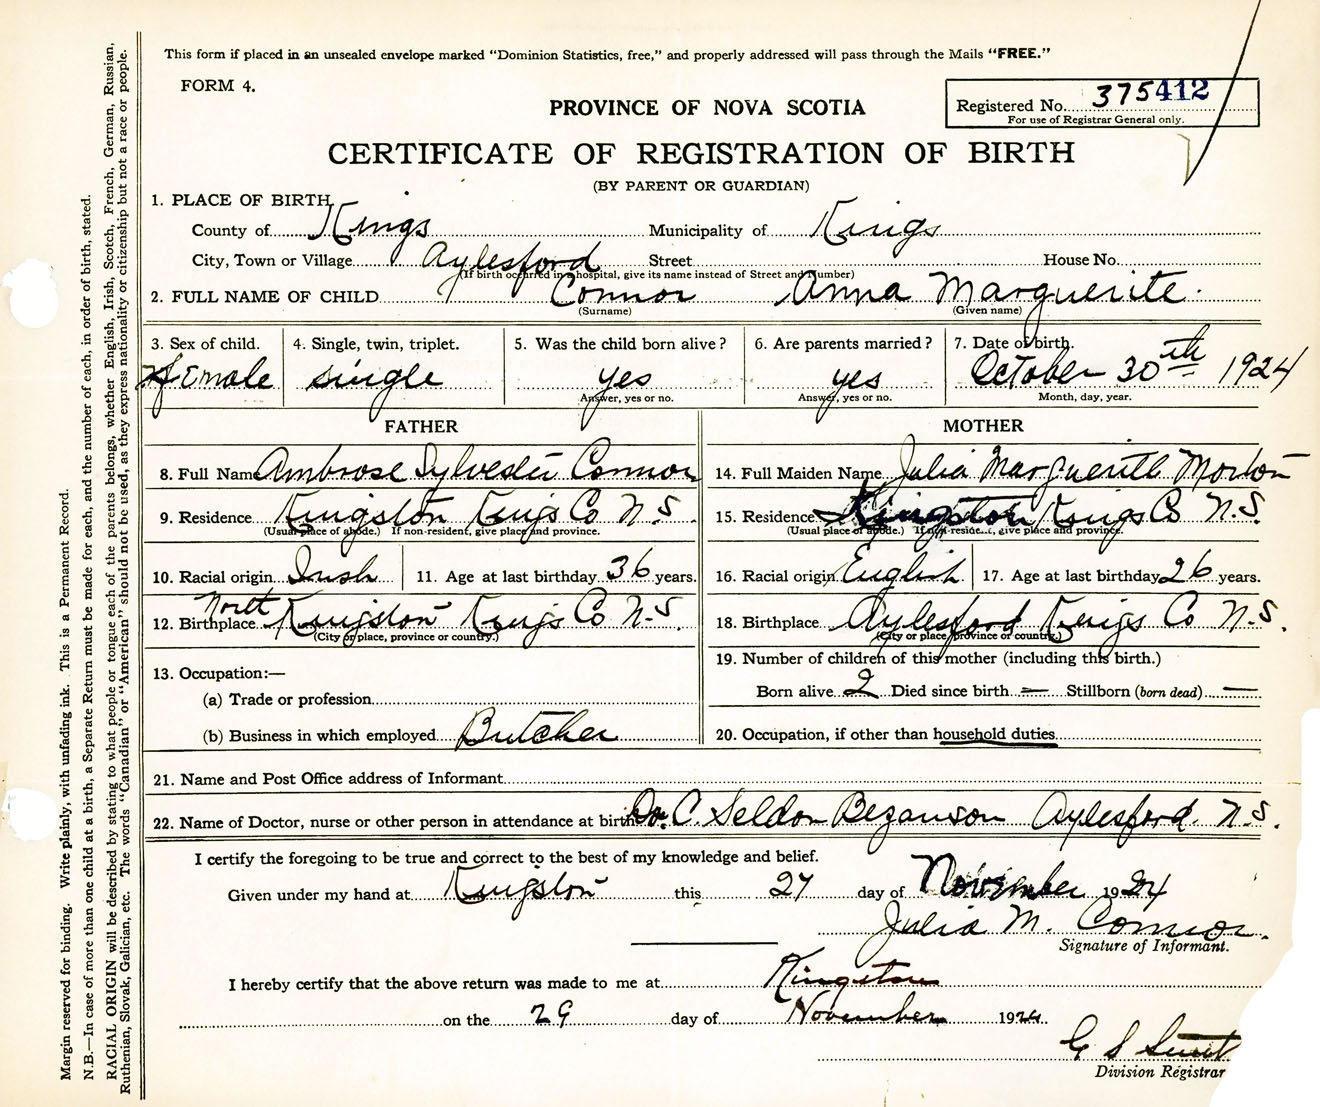 This form if placed in an unsealed envelope marked "Dominion Statistics, free," and properly addressed will pass through the Mails "FREE."
FORM 4.
Registered No. 375412
For use of Registrar General only.
PROVINCE OF NOVA SCOTIA
CERTIFICATE OF REGISTRATION OF BIRTH
(BY PARENT OR GUARDIAN)
1. PLACE OF BIRTH
County of Kings Municipality of Kings
City, Town or Village Aylesford Street House No.
(If birth occurred in a hospital, give its name instead of Street and Number)
2. FULL NAME OF CHILD Connor Anna Marguerite.
(Surname) (Given name)
3. Sex of child. 4. Single, twin, triplet. 5. Was the child born alive? 6. Are parents married? 7. Date of birth.
Female single yes yes October 30th 1924
Answer, yes or no. Answer, yes or no. Month, day, year.
FATHER
8. Full Name Ambrose Sylvester Connor
9. Residence Kingston Kings Co N.S.
(Usual place of abode.) If non-resident, give place and province.
10. Racial origin Irish 11. Age at last birthday 36 years.
North
12. Birthplace Kingston Kings Co N.S.
(City or place, province or country.)
13. Occupation:—
(a) Trade or profession
(b) Business in which employed Butcher
MOTHER
14. Full Maiden Name Julia Marguerite Morton
15. Residence Kingston Kings Co N.S.
(Usual place of abode.) If non-resident, give place and province.
16. Racial origin English 17. Age at last birthday 26 years.
18. Birthplace Aylesford Kings Co N.S.
(City or place, province or country.)
19. Number of children of this mother (including this birth.)
Born alive 2 Died since birth — Stillborn (born dead) —
20. Occupation, if other than household duties
21. Name and Post Office address of Informant
22. Name of Doctor, nurse or other person in attendance at birth Dr. C. Seldon Bezanson Aylesford. N.S.
I certify the foregoing to be true and correct to the best of my knowledge and belief.
Given under my hand at Kingston this 27 day of November 1924
Julia M. Connor.
Signature of Informant.
I hereby certify that the above return was made to me at Kingston
on the 29 day of November 1924
G S
Division Registrar
Margin reserved for binding. Write plainly, with unfading ink. This is a Permanent Record.
N.B.—In case of more than one child at a birth, a Separate Return must be made for each, and the number of each, in order of birth, stated.
RACIAL ORIGIN will be described by stating to what people or tongue each of the parents belongs, whether English, Irish, Scotch, French, German, Russian,
Ruthenian, Slovak, Galician, etc. The words "Canadian" or "American" should not be used, as they express nationality or citizenship but not a race or people.